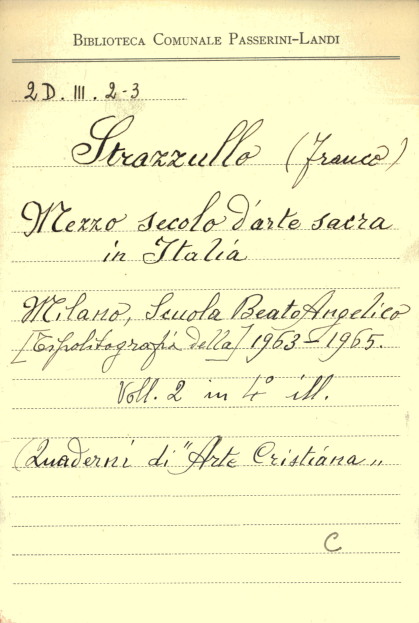 BIBLIOTECA COMUNALE PASSERINI-LANDI
2D. III. 2-3
Strazzullo (Franco)
Mezzo secolo d'arte sacra
in Italia
Milano, Scuola Beato Angelico
[Tipolitografia della] 1963-1965.
Voll. 2 in 4° ill.
(Quaderni di "Arte Cristiana„
C